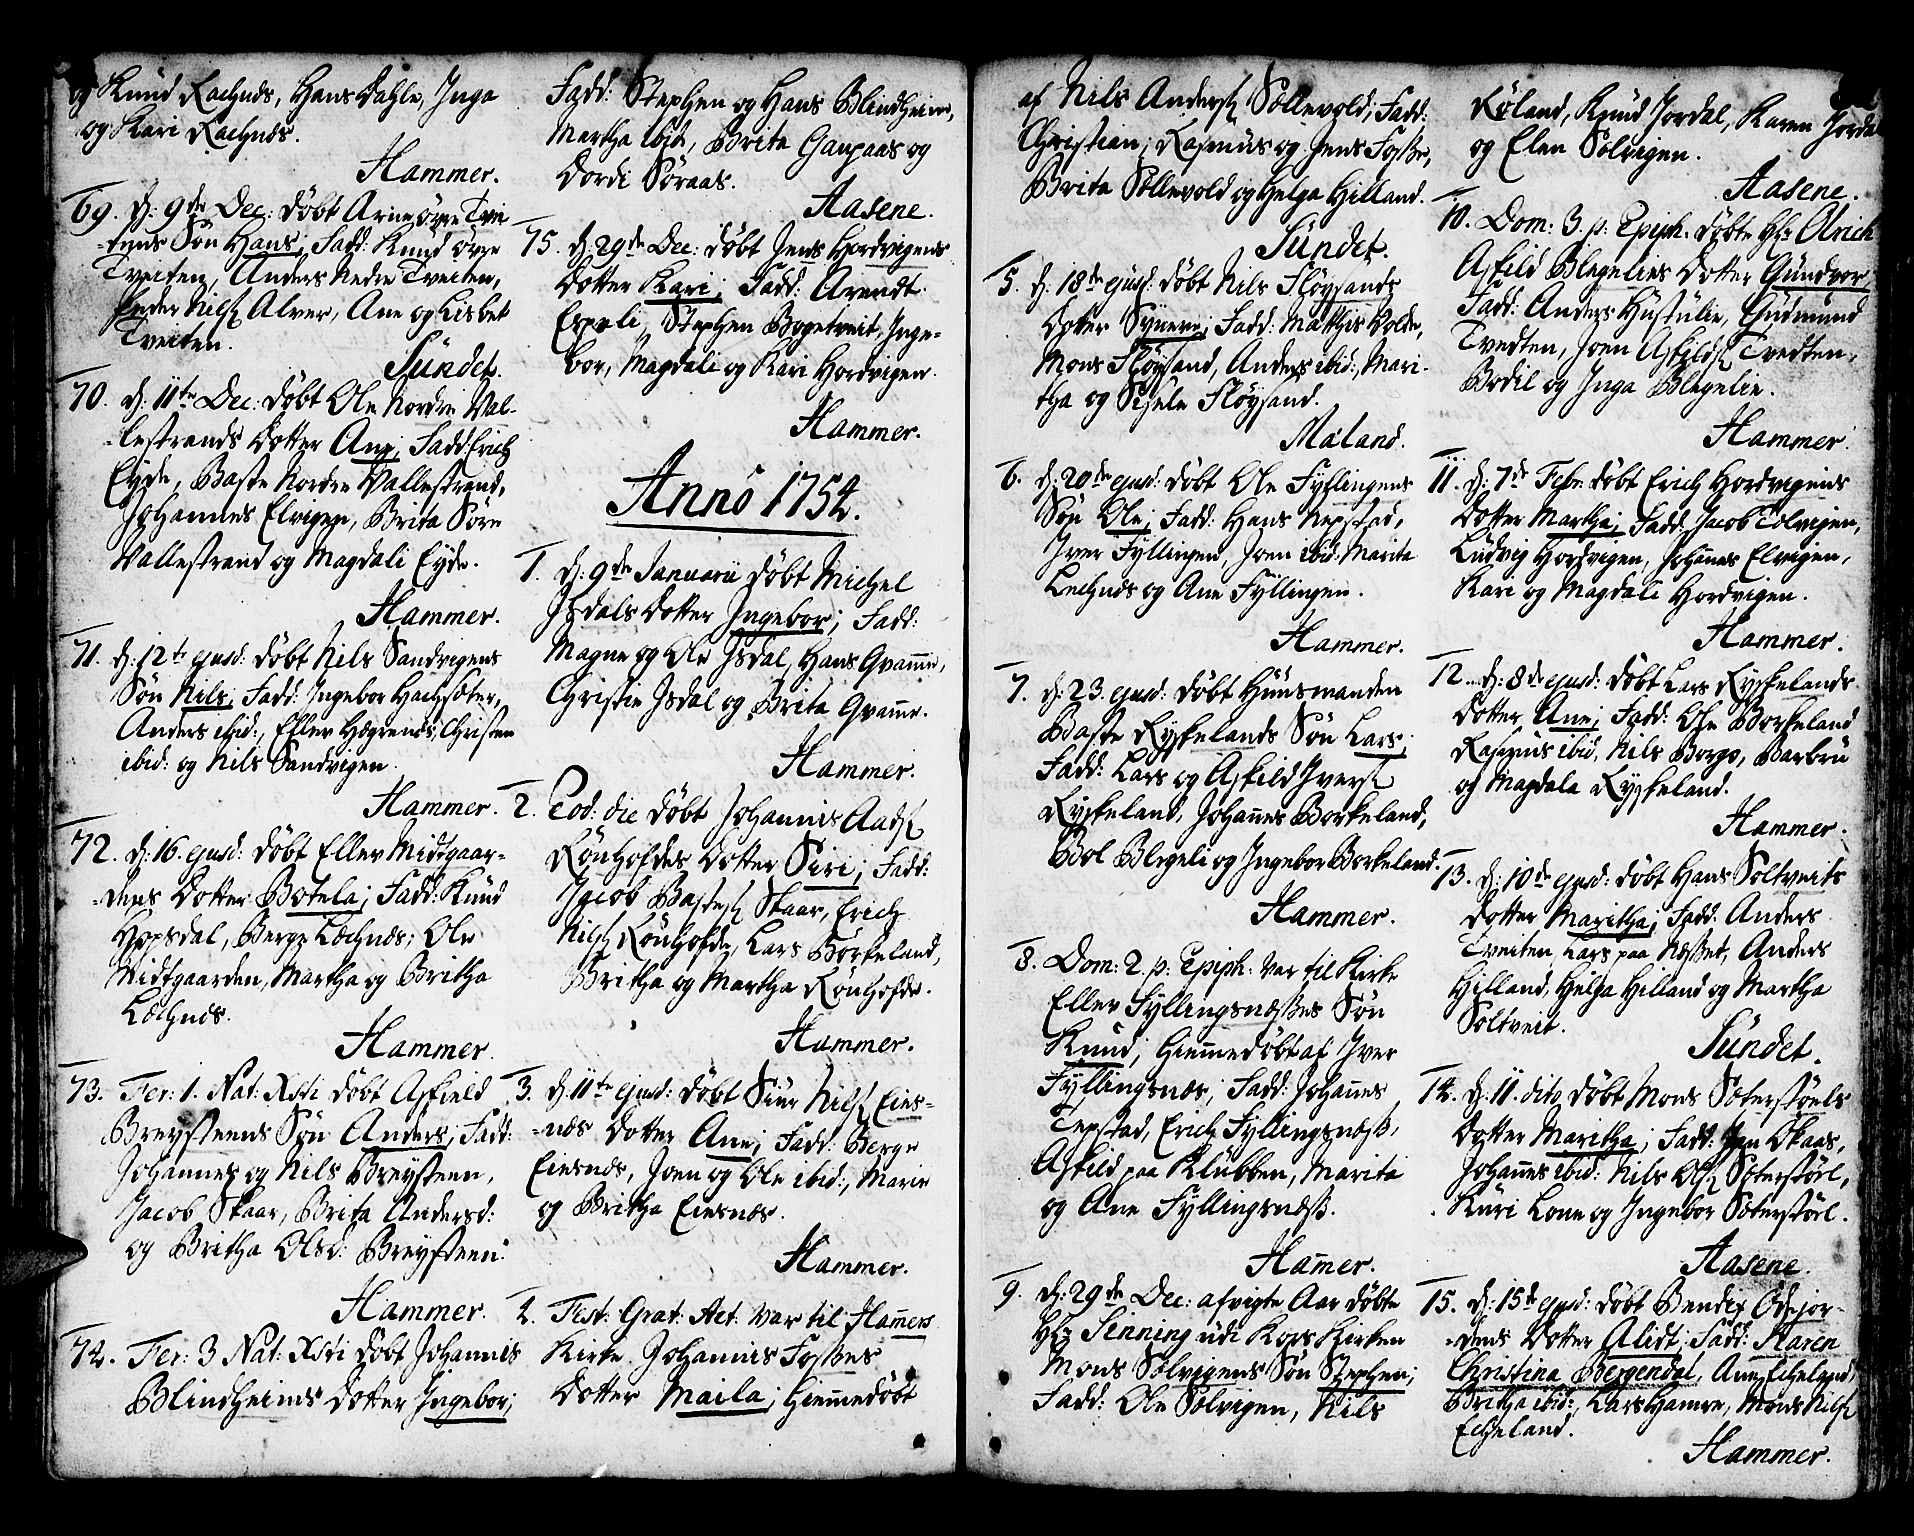 og Knud Lechnds, Hans Dahle, Inga
og Kari Lechnds.
Hammer.
69. d: 9de Dec: døbt Arne øvre Tvei-
tens Søn Hans; Fadd: Knud øvre
Tveiten, Anders Nedre Tveiten,
Peder Nilss Alver, Ane og Lisbet
Tveiten.
Sundet.
70. d: 11te Dec: døbt Ole Nordre Val-
lestrands Dotter Ane; Fadd: Erich
Eyde, Baste Nordre Vallestrand,
Johannes Elvigen, Brita Søre
Vallestrand og Magdali Eyde.
Hammer.
71. d: 12te ejusd: døbt Nils Sandvigens
Søn Nils; Fadd: Ingebor
Anders ibid:, Ellev Christen
ibid: og Nils Sandvigen.
Hammer.
72. d: 16. ejusd: døbt Ellev Midtgaar-
dens Dotter Botela; Fadd: Knud
Hopsdal, Berge Lechnds; Ole
Midtgaarden, Martha og Britha
Lechnds.
Hammer.
73. Fer: 1. Nat: Xsti døbt Askield
Breysteens Søn Anders; Fadd:
Johannes og Nils Breysteen,
Jacob Skaar, Brita Andersd:
og Britha Olsd: Breysteen:
Hammer.
74. Fer: 3 Nat: Xsti døbt Johannis
Blindheims Dotter Ingebor;
Fadd: Stephen og Hans Blindheim,
Martha ibid, Brita Gaupaas og
Dordi Søraas.
Aasene.
75. d: 29de Dec: døbt Jens Hordvigens
Dotter Kari; Fadd: Arendt
Espeli, Stephen Bogetveit, Inge-
bor, Magdali og Kari Hordvigen.
Hammer.
Anno 1754.
1. d: 9de Januarii døbt Michel
Isdals Dotter Ingebor; Fadd:
Magne og Ole Isdal, Hans Qvamme,
Christie Isdal og Brita Qvamme.
Hammer.
2. Eod: die døbt Johannis Aads
Rønhofdes Dotter Siri; Fadd:
Jacob Bastess Skaar, Erich
Nilss Rønhofde, Lars Børkeland,
Britha og Martha Rønhofde.
Hammer.
3. d: 11te ejusd: døbt Siur Nilss Eies-
næs Dotter Ane; Fadd: Berge
Eiesnæs, Joen og Ole ibid:, Marie
og Britha Eiesnæs.
Hammer.
4. Fest: Grat: Act: var til Hamers
Kirke Johannis Fosses
Dotter Maila; Hiemmedøbt
af Nils Anderss Søllevold; Fadd:
Christian, Rasmus og Jens Fosse,
Brita Søllevold og Helga Hilland.
Sundet.
5. d: 18de ejusd: døbt Nils Fløysands
Dotter Synneve; Fadd: Matthis Volde,
Mons Fløysand, Anders ibid:, Mari-
tha og Sigele Fløysand.
Mæland.
6. d: 20de ejusd: døbt Ole Fyllingens
Søn Ole; Fadd: Hans Nepstad,
Iver Fyllingen, Joen ibid: Marita
Lechnds og Ane Fyllingen.
Hammer.
7. d: 23. ejusd: døbt Huusmanden
Baste Ryskelands Søn Lars;
Fadd: Lars og Askild Iverss
Ryskeland, Johannes Borkeland,
Bol Blegeli og Ingebor Borkeland.
Hammer.
8. Dom: 2. p: Epiph: var til Kirke
Ellev Fyllingsnæsses Søn
Knud; Hiemmedøbt af Iver
Fyllingsnæs; Fadd: Johannes
Tepstad, Erich Fyllingsnæss,
Askild paa Klubben, Marita
og Ane Fyllingsnæss.
Hamer.
9. d: 29de Dec: afvigte Aar døbte
Hr Fenning udi Kors Kirken
Mons Solvigens Søn Stephen;
Fadd: Ole Solvigen, Nils
Røland, Knud Jordal, Karen Jordal
og Elen Solvigen.
Aasene.
10. Dom: 3. p: Epiph. døbte Hr Olrich
Askild Blegelies Dotter Gundvor;
Fadd: Anders Hustulie, Gudmund
Tvedten, Joen Askildss Tvedten,
Bodil og Inga Blegelie.
Hammer.
11. d: 7de Febr døbt Erich Hordvigens
Dotter Martha; Fadd: Jacob Tolvigen,
Ludvig Hordvigen, Johannes Elvigen,
Kari og Magdali Hordvigen.
Hammer.
12. d: 8de ejusd: døbt Lars Ryskelands
Dotter Ane; Fadd: Ole Borkeland
Rasmus ibid, Nils Borge, Barbru
og Magdala Ryskeland.
Hammer.
13. d: 10de ejusd: døbt Hans Soltveits
Dotter Maritha; Fadd: Anders
Tveiten, Lars paa Næsset, Anders
Hilland, Helga Hilland og Martha
Soltveit.
Sundet.
14. d: 11. dito døbt Mons Sæterstøels
Dotter Maritha; Fadd: Skaas,
Johannes ibid: Nils Olss Sæterstøel,
Kari Lone og Ingebor Sæterstøel.
Aasene.
15. d: 15de ejusd: døbt Bendix Ødejor-
dens Dotter Alidt; Fadd: Karen
Christina Bergendal, Ane Echeland,
Britha ibid:, Lars Hamre, Mons Nilss
Echeland.
Hammer.